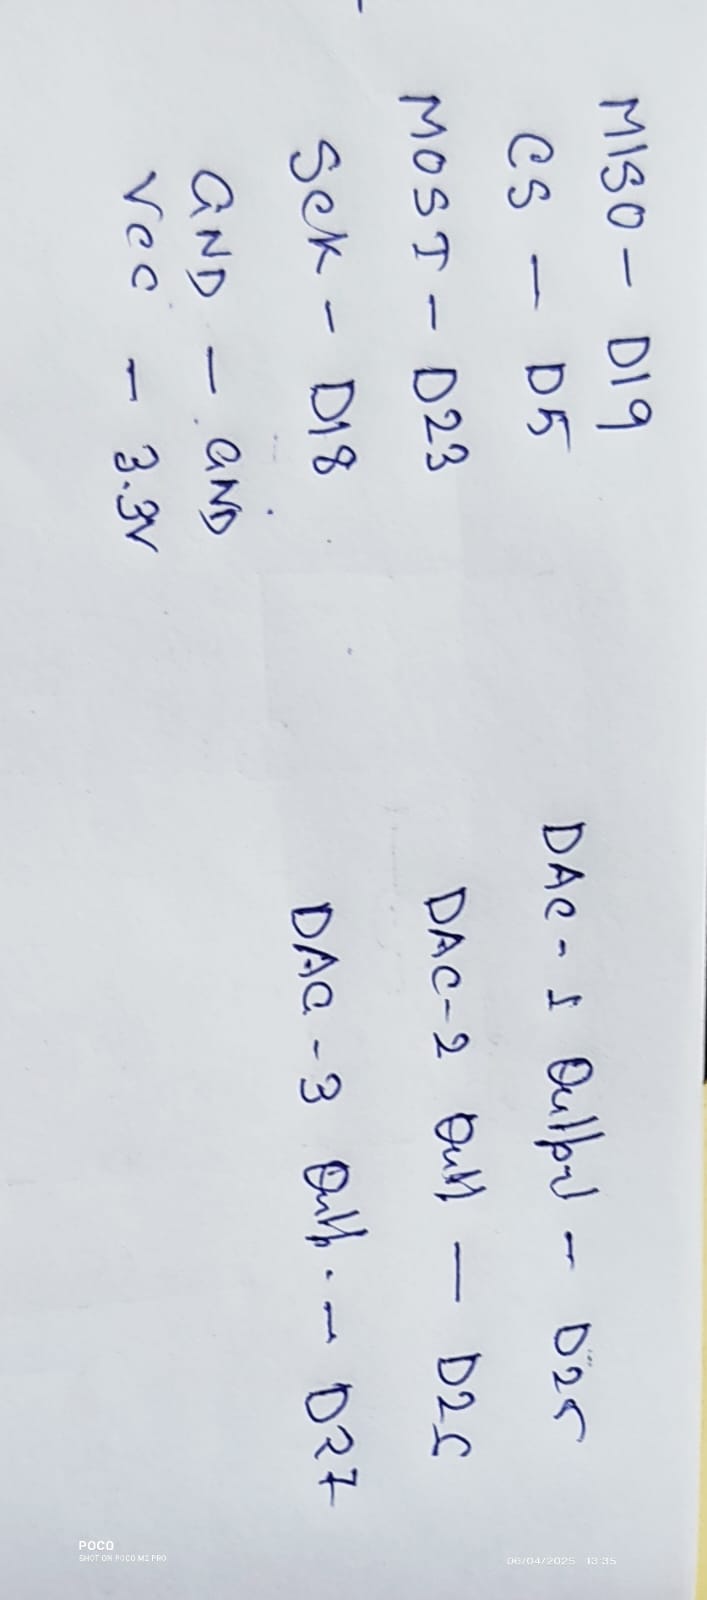 MISO - D19
CS - D5
MOSI - D23
SCK - D18
GND - GND
VCC - 3.3V
DAC-1 Output - D25
DAC-2 Out -
DAC-3 Outp. - D27
POCO
SHOT ON POCO M2 PRO
06/04/2025 13:35